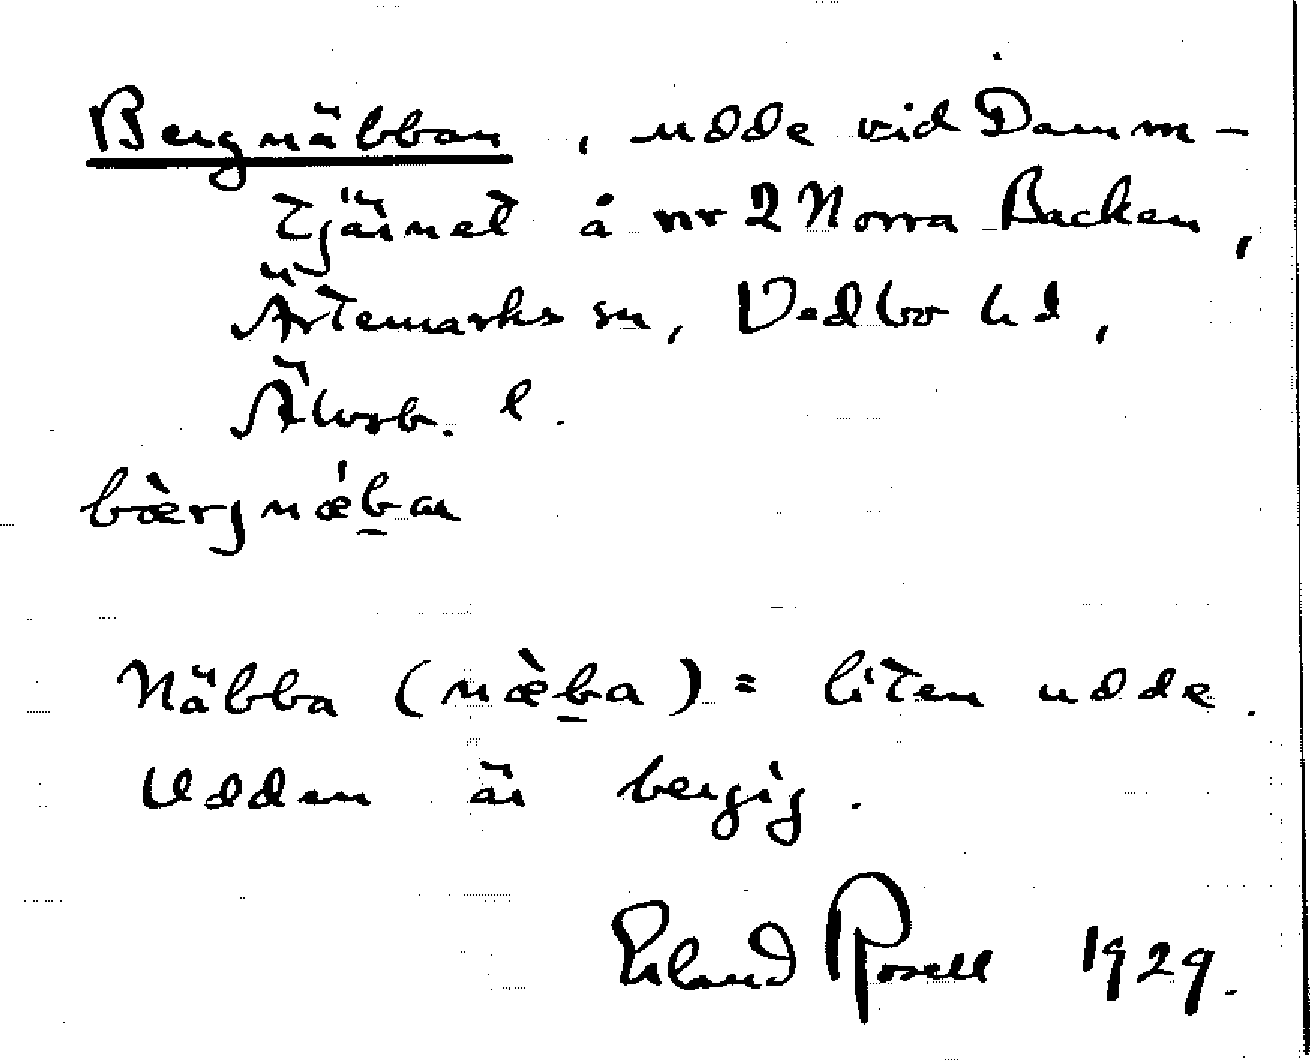 Bergnäbban, udde vid Damm-
tjärnet å nr 2 Norra Backen,
Ärtemarks sn, Vedbo hd,
Älvsb. l.
bæ̀rjnǽb̠an
Näbba (næ̀b̠a) = liten udde.
Udden är bergig.
Erland Rosell 1929.